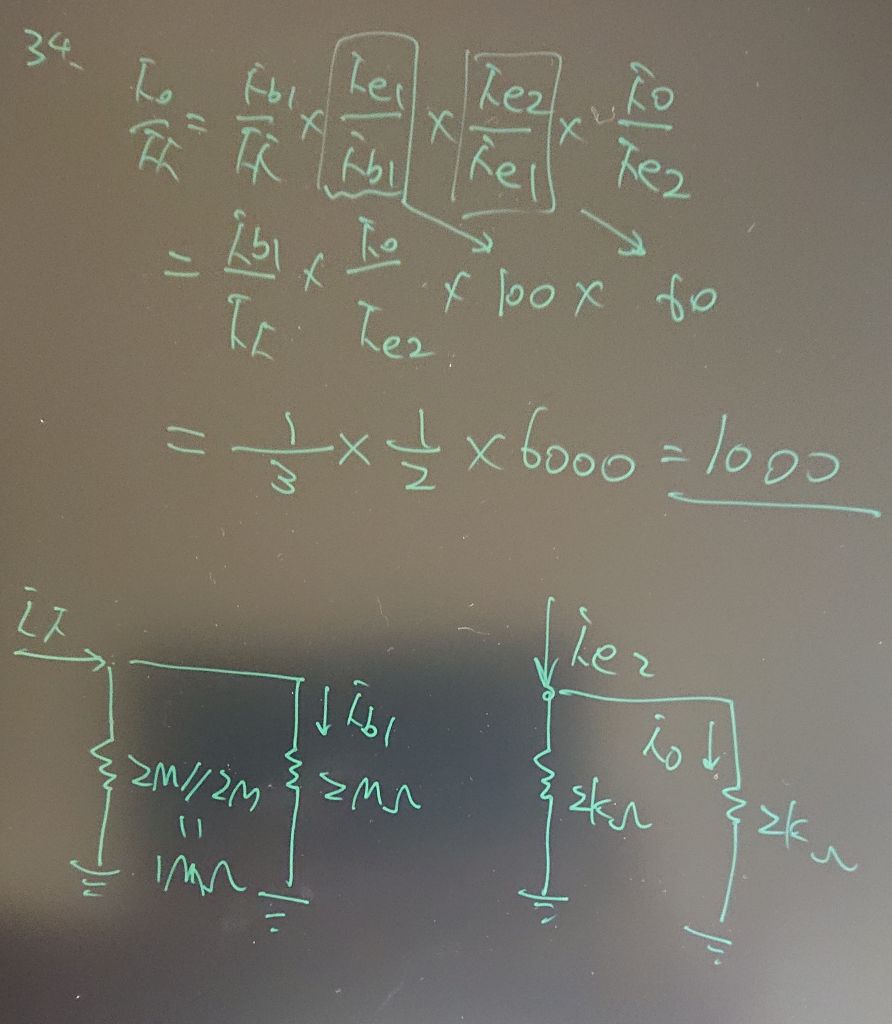 34.
io/ii = ib1/ii × ie1/ib1 × ie2/ie1 × io/ie2
= ib1/ii × io/ie2 × 100 × 60
= 1/3 × 1/2 × 6000 = 1000
ii
ib1
2M//2M
=
1MΩ
2MΩ
ie2
io
2kΩ
2kΩ